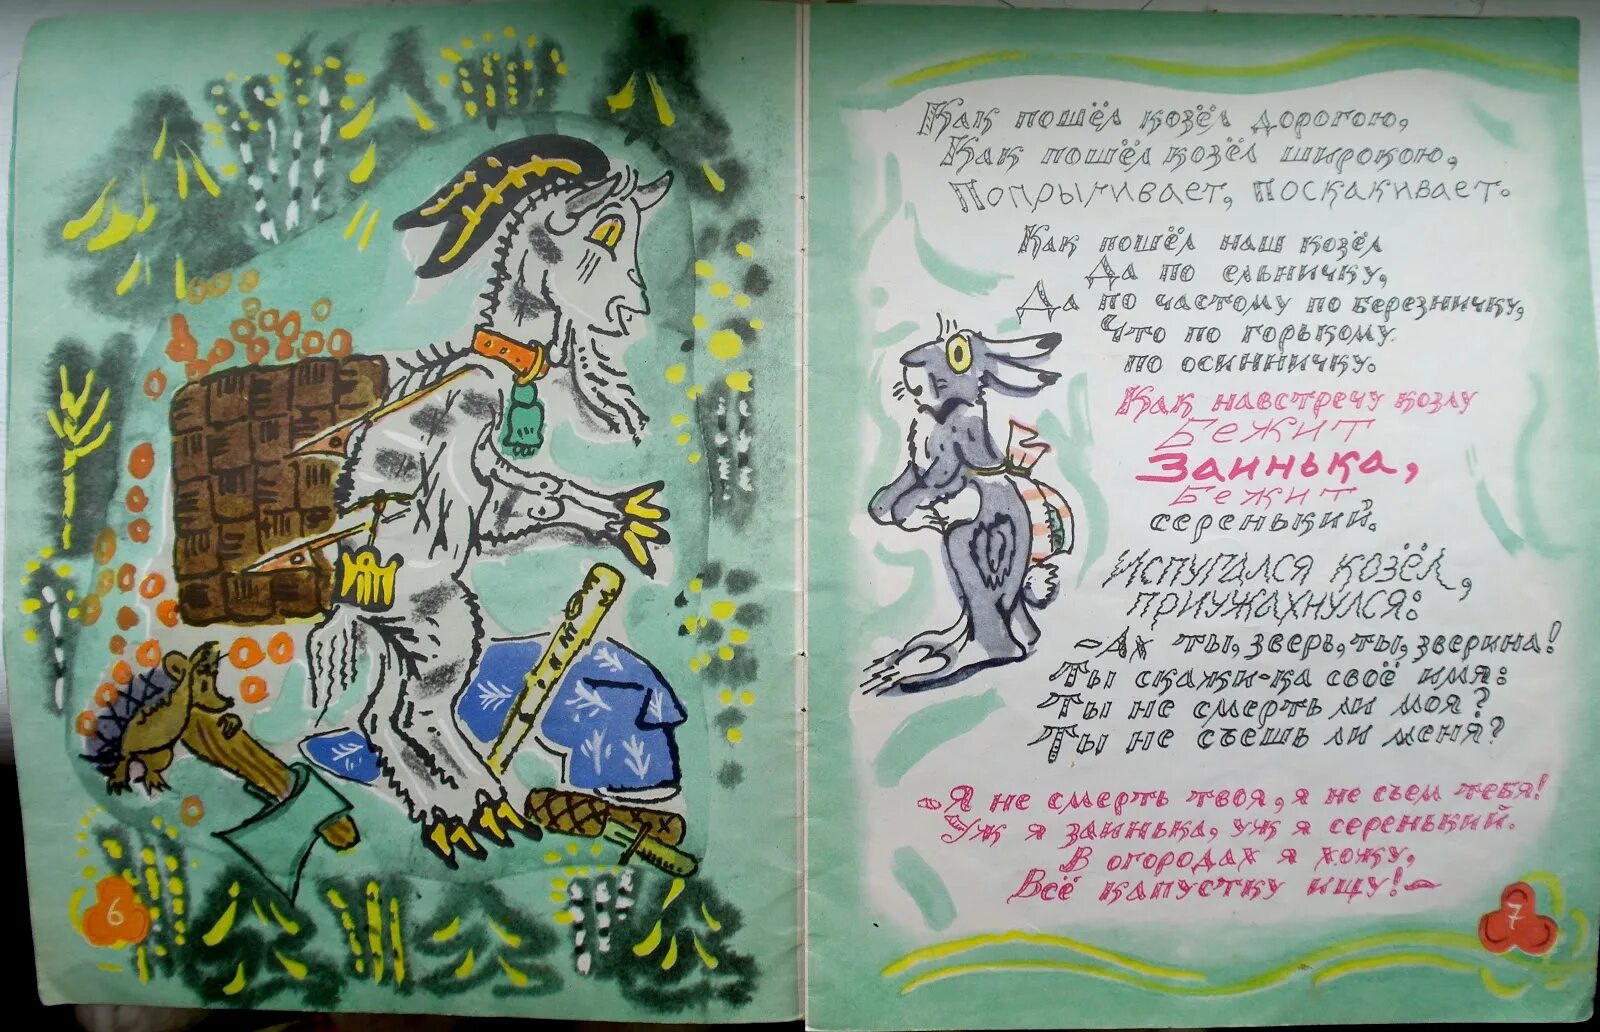 Как пошёл козёл дорогою,
Как пошёл козёл широкою,
Попрыгивает, поскакивает.
Как пошёл наш козёл
Да по ельничку,
Да по частому по березничку,
Что по горькому
по осинничку.
Как навстречу козлу
Бежит
Заинька,
Бежит
серенький.
Испугался козёл,
приужахнулся:
-Ах ты, зверь, ты, зверина!
Ты скажи-ка своё имя:
Ты не смерть ли моя?
Ты не съешь ли меня?
-Я не смерть твоя, я не съем тебя!
Уж я заинька, уж я серенький.
В огородах я хожу,
Всё капустку ищу!-
6
7